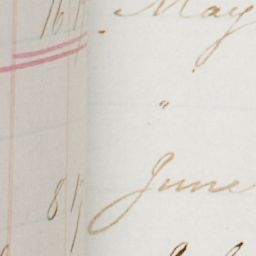 16 May
"
8 June